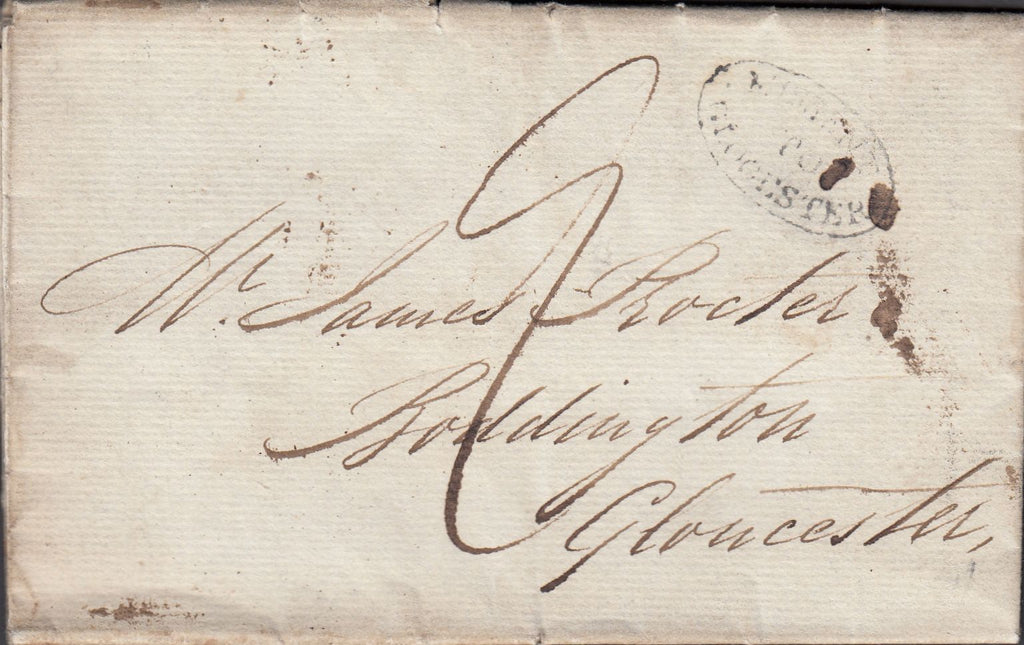 GLOCESTER
Mr. James Procter
Boddington
Gloucester,